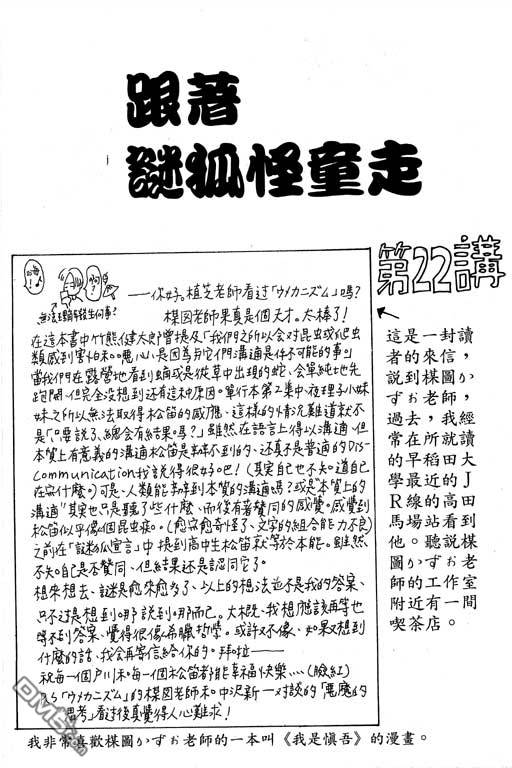 跟著
謎狐怪童走
第22講
這是一封讀
者的來信，
說到楳圖か
ずお老師，
過去，我經
常在所就讀
的早稻田大
學最近的J
R線的高田
馬場站看到
他。聽說楳
圖かずお老
師的工作室
附近有一間
喫茶店。
——你好。植芝老師看过「ウメカニズム」嗎？
楳図老師果真是個天才。太棒了！
在這本書中竹熊健太郎曾提及「我們之所以会对昆虫或爬虫
類感到害怕和噁心，是因為和它們溝通是件不可能的事。」
當我們在露營地看到蜘蛛或是從草中出現的蛇、會單純地先
跑開、但完全沒想到还有這种原因。單行本第2集中、夜理子小妹
妹之所以無法取得松笛的感應、這樣的情況難道就不
是「只要說了、總會有結果嗎？」雖然在語言上得以溝通、但
本質上有意義的溝通松笛是辦不到的、还真不是普通的Dis-
communication我說得很好吧！（其實自己也不知道自己
在寫什麼。）可是、人類能辦到本質的溝通嗎？或是"本質上的
溝通"其实也只是聽了些什麼、而後有著贊同的感覺。感覺到
松笛似乎像個昆虫疾。（愈寫愈奇怪了、文字的組合能力不良）
之前在「謎狐宣言」中提到高中生松笛就等於本能。雖然
不知自己是否贊同、但結果还是認同它了。
想來想去、謎是愈來愈多了、以上的想法並不是我的答案、
只不过是想到哪說到哪而已。大概、我想應該再等也
等不到答案、覺得很像希臘哲學。或許又不像、如果又想到
什麼的話、我会再寄信給你的。拜啦——
祝每一個戶川和每一個松笛都能幸福快樂…（臉紅）
「ウメカニズム」的楳図老師和中沢新一对談的「惡魔的
思考」看过後真覺得人心難求！
我非常喜歡楳圖かずお老師的一本叫《我是慎吾》的漫畫。